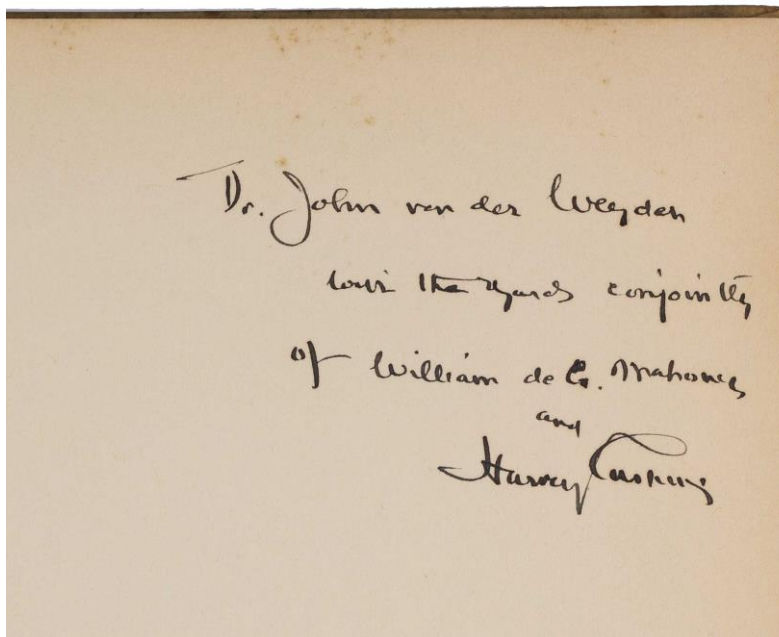 Dr. John van der Weyden
with the regards conjointly
of William de G. Mahoney
and
Harvey Cushing